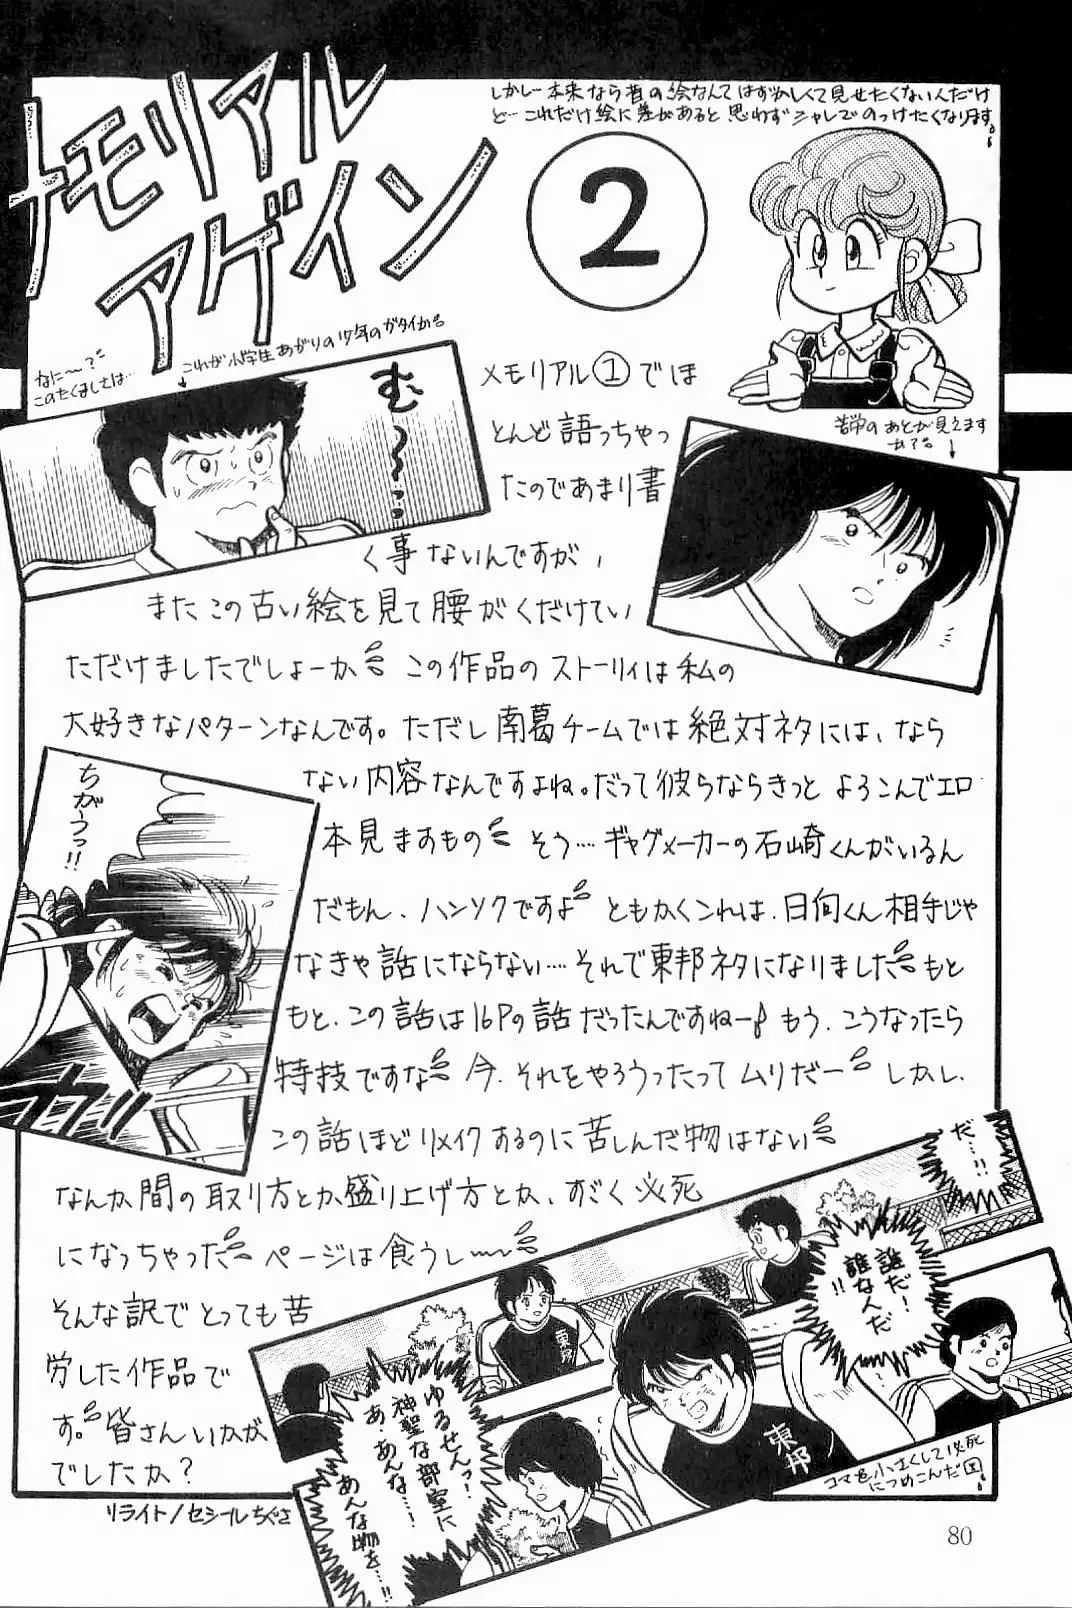 メモリアル
アゲイン
2
しかし…本来なら昔の絵なんてはずかしくて見せたくないんだけ
ど…これだけ絵に差があると思わずシャレでのっけたくなります。
なに～?
このたくましさは…
これが小学生あがりの12才のガタイか。
む～…
苦労のあとが見えます
か?。
メモリアル①でほ
とんど語っちゃっ
たのであまり書
く事ないんですが、
またこの古い絵を見て腰がくだけてい
ただけましたでしょーか この作品のストーリィは私の
大好きなパターンなんです。ただし南葛チームでは絶対ネタには、なら
ない内容なんですよね。だって彼らならきっとよろこんでエロ
本見ますもの そう…ギャグメーカーの石崎くんがいるん
だもん、ハンソクですよ ともかくこれは、日向くん相手じゃ
なきゃ話にならない…それで東邦ネタになりました もと
もと、この話は16Pの話だったんですねー もう、こうなったら
特技ですな 今、それをやろうったってムリだー しかし、
この話ほどリメイクするのに苦しんだ物はない
なんか間の取り方とか盛り上げ方とか、すごく必死
になっちゃった ページは食うし～
そんな訳でとっても苦
労した作品で
す。皆さんいかが
でしたか?
ちがうっ!!
だ…!!
誰だ!
誰なんだ
!!
東邦
東邦
ゆるせんっ!
神聖な部室に
あ・あんな…!
あんな物を…!!
コマを小さくして必死
につめこんだ図
リライト/セシールちぐさ
80